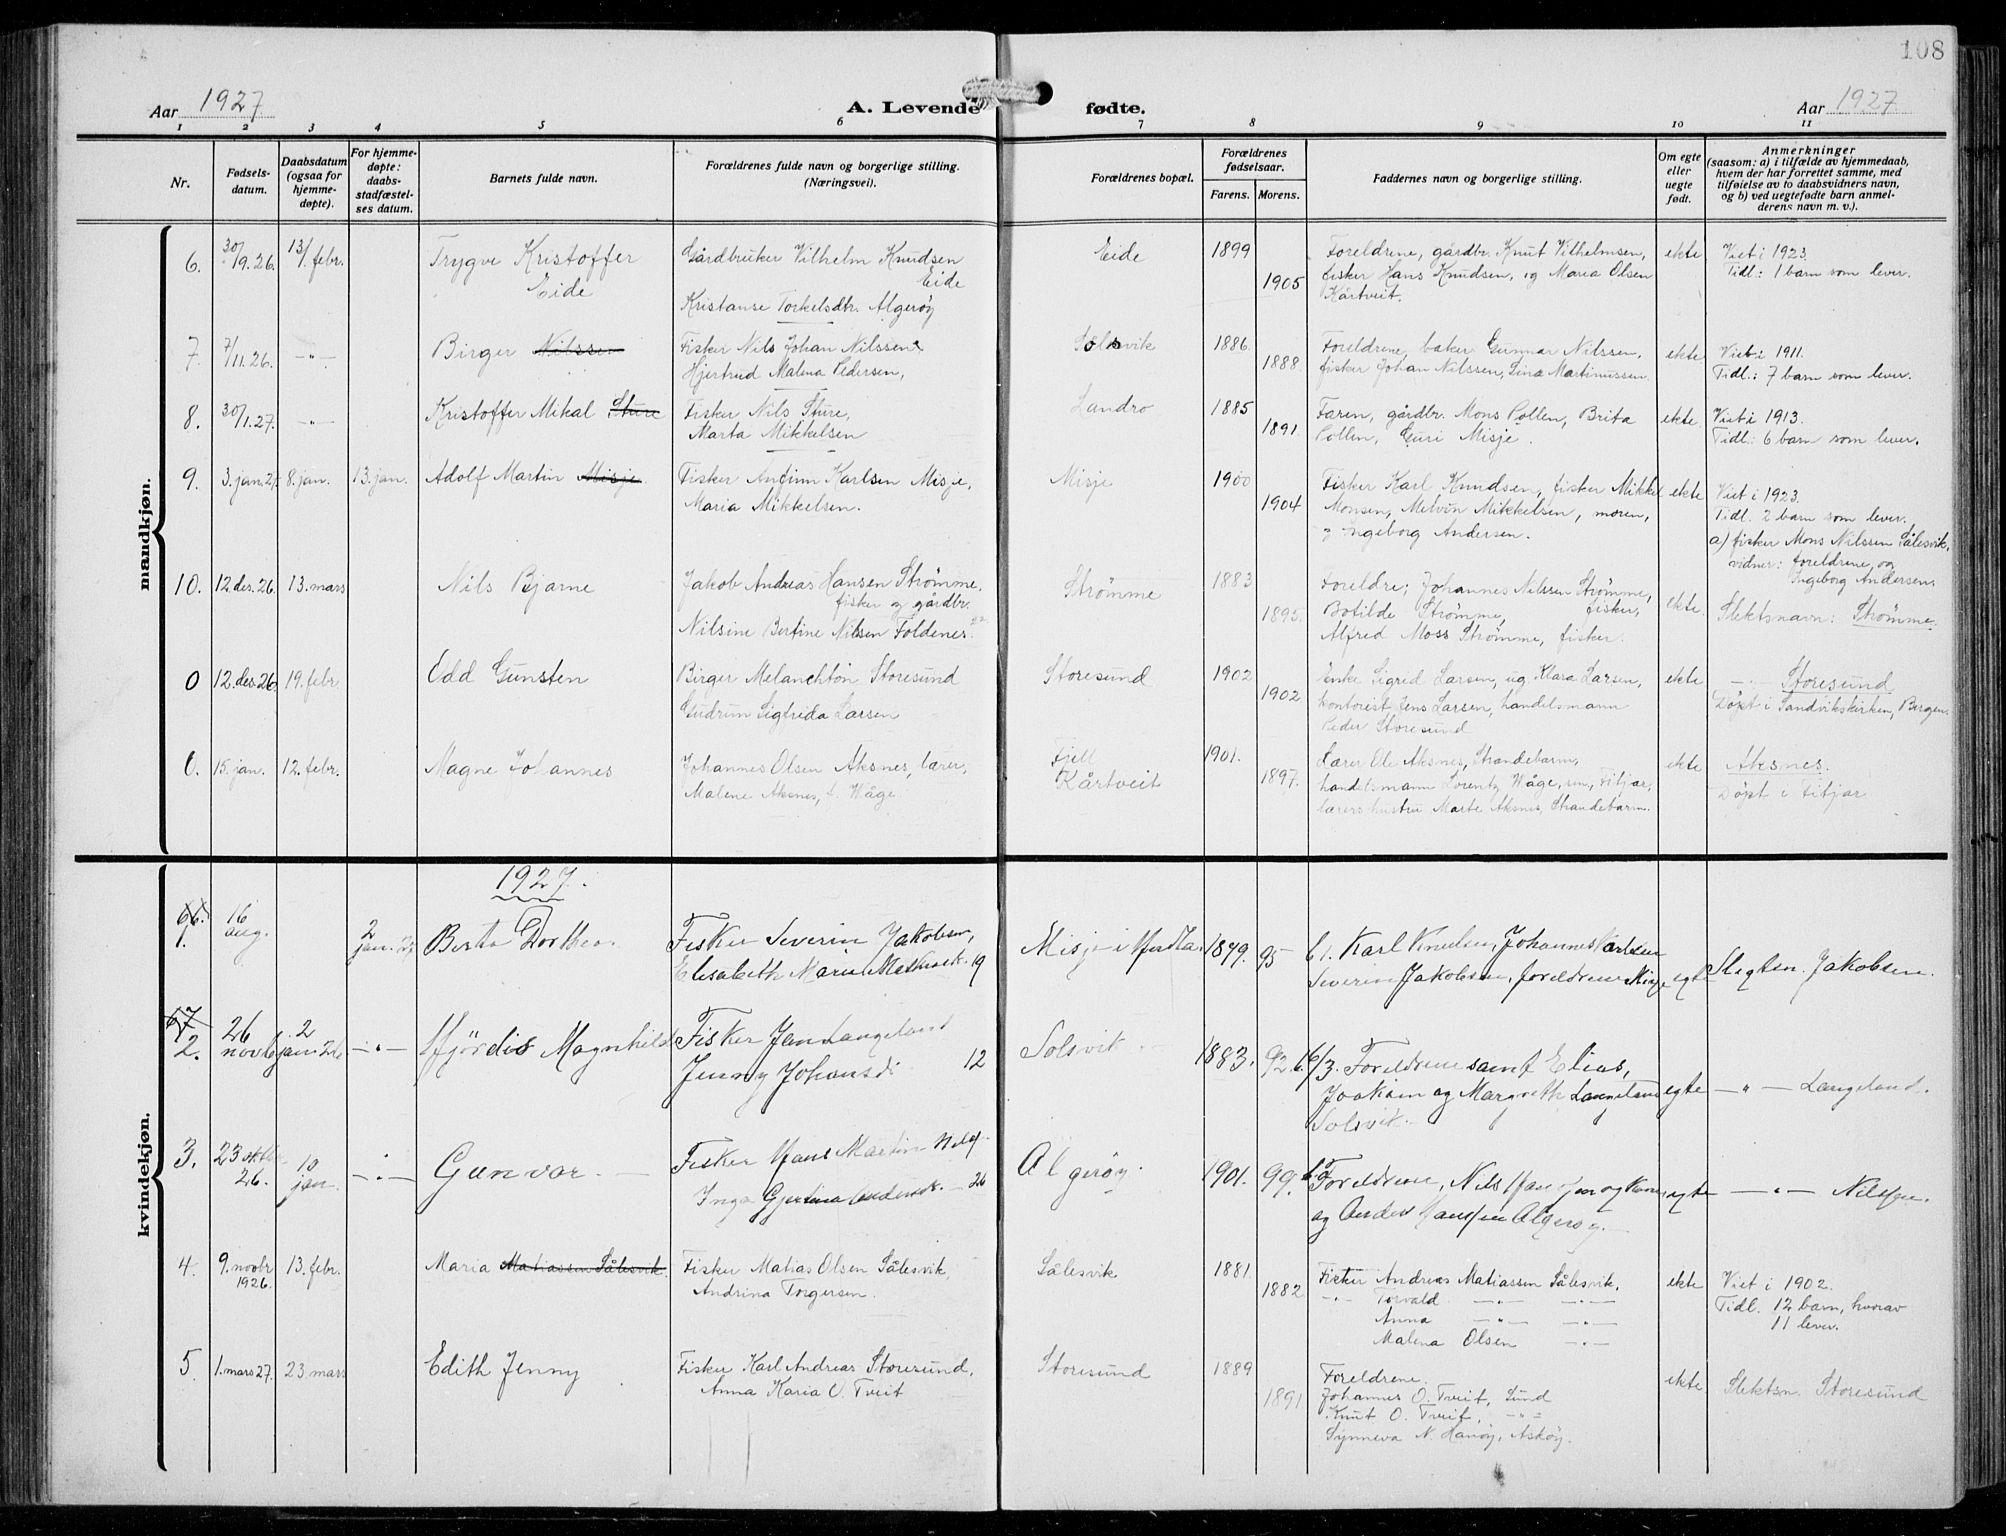 108
Aar 1927
A. Levende fødte.
Aar 1927
1 2 3 4 5 6 7 8 9 10 11
Nr.
Fødsels-
datum.
Daabsdatum
(ogsaa for
hjemme-
døpte).
For hjemme-
døpte:
daabs-
stadfæstel-
ses datum.
Barnets fulde navn.
Forældrenes fulde navn og borgerlige stilling.
(Næringsvei).
Forældrenes bopæl.
Forældrenes
fødselsaar.
Farens. Morens.
Faddernes navn og borgerlige stilling.
Om egte
eller
uegte
født.
Anmerkninger
(saasom: a) i tilfælde av hjemmedaab,
hvem der har forrettet samme, med
tilføielse av to daabsvidners navn,
og b) ved uegtefødte barn anmel-
derens navn m. v.).
mandkjøn.
6. 30/9.26. 13/febr. Trygve Kristoffer
Eide
Gårdbruker Vilhelm Knudsen
Eide
Kristanse Torkelsdtr. Algerøy
Eide 1899
1905
Foreldrene, gårdbr. Knut Vilhelmsen,
fisker Hans Knudsen, og Maria Olsen
Kårtveit.
ekte
Viet i 1923.
Tidl.: 1 barn som lever.
7. 7/11.26. -"- Birger Nilssen
Fisker Nils Johan Nilssen
Hjertrud Malena Pedersen,
Solsvik 1886
1888
Foreldrene, baker Gunnar Nilssen,
fisker Johan Nilssen, Lina Martinussen
ekte
Viet i 1911.
Tidl.: 7 barn som lever.
8. 30/1.27. -"- Kristoffer Mikal Sture
Fisker Nils Sture,
Marta Mikkelsen
Landro 1885
1891
Faren, gårdbr. Mons Pollen, Brita
Pollen, Guri Misje.
ekte
Viet i 1913.
Tidl.: 6 barn som lever.
9. 3. jan. 27. 8. jan. 13. jan. Adolf Martin Misje
Fisker Anfinn Karlsen Misje,
Maria Mikkelsen.
Misje 1900
1904
Fisker Karl Knudsen, fisker Mikkel
Monsen, Melvin Mikkelsen, moren,
og Ingeborg Andersen.
ekte
Viet i 1923.
Tidl. 2 barn som lever.
a) fisker Mons Nilssen Sålesvik,
vidner: foreldrene, og
Ingeborg Andersen.
10. 12. des. 26. 13. mars Nils Bjarne
Jakob Andreas Hansen Strømme,
fisker og gårdbr.
Nilsine Bertine Nilsen Foldenes
Strømme 1883
1895
Foreldre; Johannes Nilssen Strømme,
fisker,
Botilde Strømme,
Alfred Moss Strømme, fisker.
ekte
Slektsnavn: Strømme.
0 12. des. 26. 19. febr. Odd Gunsten
Birger Melanchton Storesund
Gudrun Sigfrida Larsen
Storesund 1902
1902
Enke Sigrid Larsen, ug. Klara Larsen,
kontorist Jens Larsen, handelsmann
Peder Storesund
ekte
-"- Storesund
Døpt i Sandvikskirken, Bergen.
0. 15. jan. 12. febr. Magne Johannes
Johannes Olsen Aksnes, lærer,
Malene Aksnes, f. Våge
Fjell
Kårtveit
1901.
1897.
Lærer Ole Aksnes, Strandebarm,
handelsmann Lorentz Wåge, sen., Fitjar,
lærers hustru Marte Aksnes, Strandebarm.
ekte
Aksnes.
Døpt i Fitjar
kvindekjøn.
1927.
66.
1. 16
aug. 2
jan. Berta Dorthea.
Fisker Severin Jakobsen,
Elisabeth Marie 19
Misje i Herdla 1879. 95
61. Karl Knudsen, Johannes Karlsen
Severin Jakobsen, foreldrene Misje
egte
Slegtsn. Jakobsen.
67
2. 26
novb 2
jan. -"- Hjördis Magnhild
Fisker Jan Langeland
Jenny Johansd. 12
Solsvik 1883. 92.
6/3. Foreldrene samt Elias,
Joakim og Margreth Langeland
Solsvik.
egte
-"- Langeland.
3. 23 oktbr
26. 10
jan. -"- Gunvor.
Fisker Hans Martin Nils
Inga Gjertina 26
Algeröy. 1901. 99.
Foreldrene, Nils
og Anders Hansen Algeröy.
egte
-"- Nilsen.
4. 9. novbr
1926. 13. febr. Maria Matiassen Sålesvik.
Fisker Matias Olsen Sålesvik,
Andrina Torgersen.
Sålesvik 1881.
1882
Fisker Andreas Matiassen Sålesvik,
-"- Torvald -"- -"-
Anna -"- -"-
Malena Olsen -"-
ekte
Viet i 1902.
Tidl. 12 barn, hvorav
11 lever.
5 1. mars 27. 23. mars Edith Jenny
Fisker Karl Andreas Storesund,
Anna Karia O. Tveit
Storesund 1889
1891
Foreldrene.
Johannes O. Tveit, Sund
Knut O. Tveit, -"-
Synneva N. Hanøy, Askøy.
ekte
Slektsn. Storesund